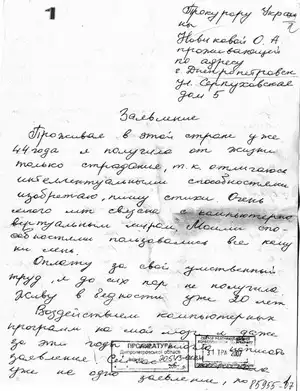 1
Прокурору Украи
ны
Новиковой О. А
проживающей
по адресу
г. Днипропетровск
ул. Серпуховская
дом 5
Заявление
Проживая в этой стране уже
44 года я получила от жизни
только страдание, т.к. отличаюсь
интеллектуальными способностями
изобретаю, пишу стихи Очень
много лет связана с компьютерно
виртуальным миром, Моими спо
собностями пользовались все кому
ни лень.
Оплату за свой умственный
труд, я до сих пор не получила
Живу в бедности уже 20 лет
Воздействием компьютерных
программ на мой мозг я даже
за эти годы писать
заявление, Сейчас
уже не одно заявление, но
ПРОКУРАТУРА
Дніпропетровської області
31 ТРА